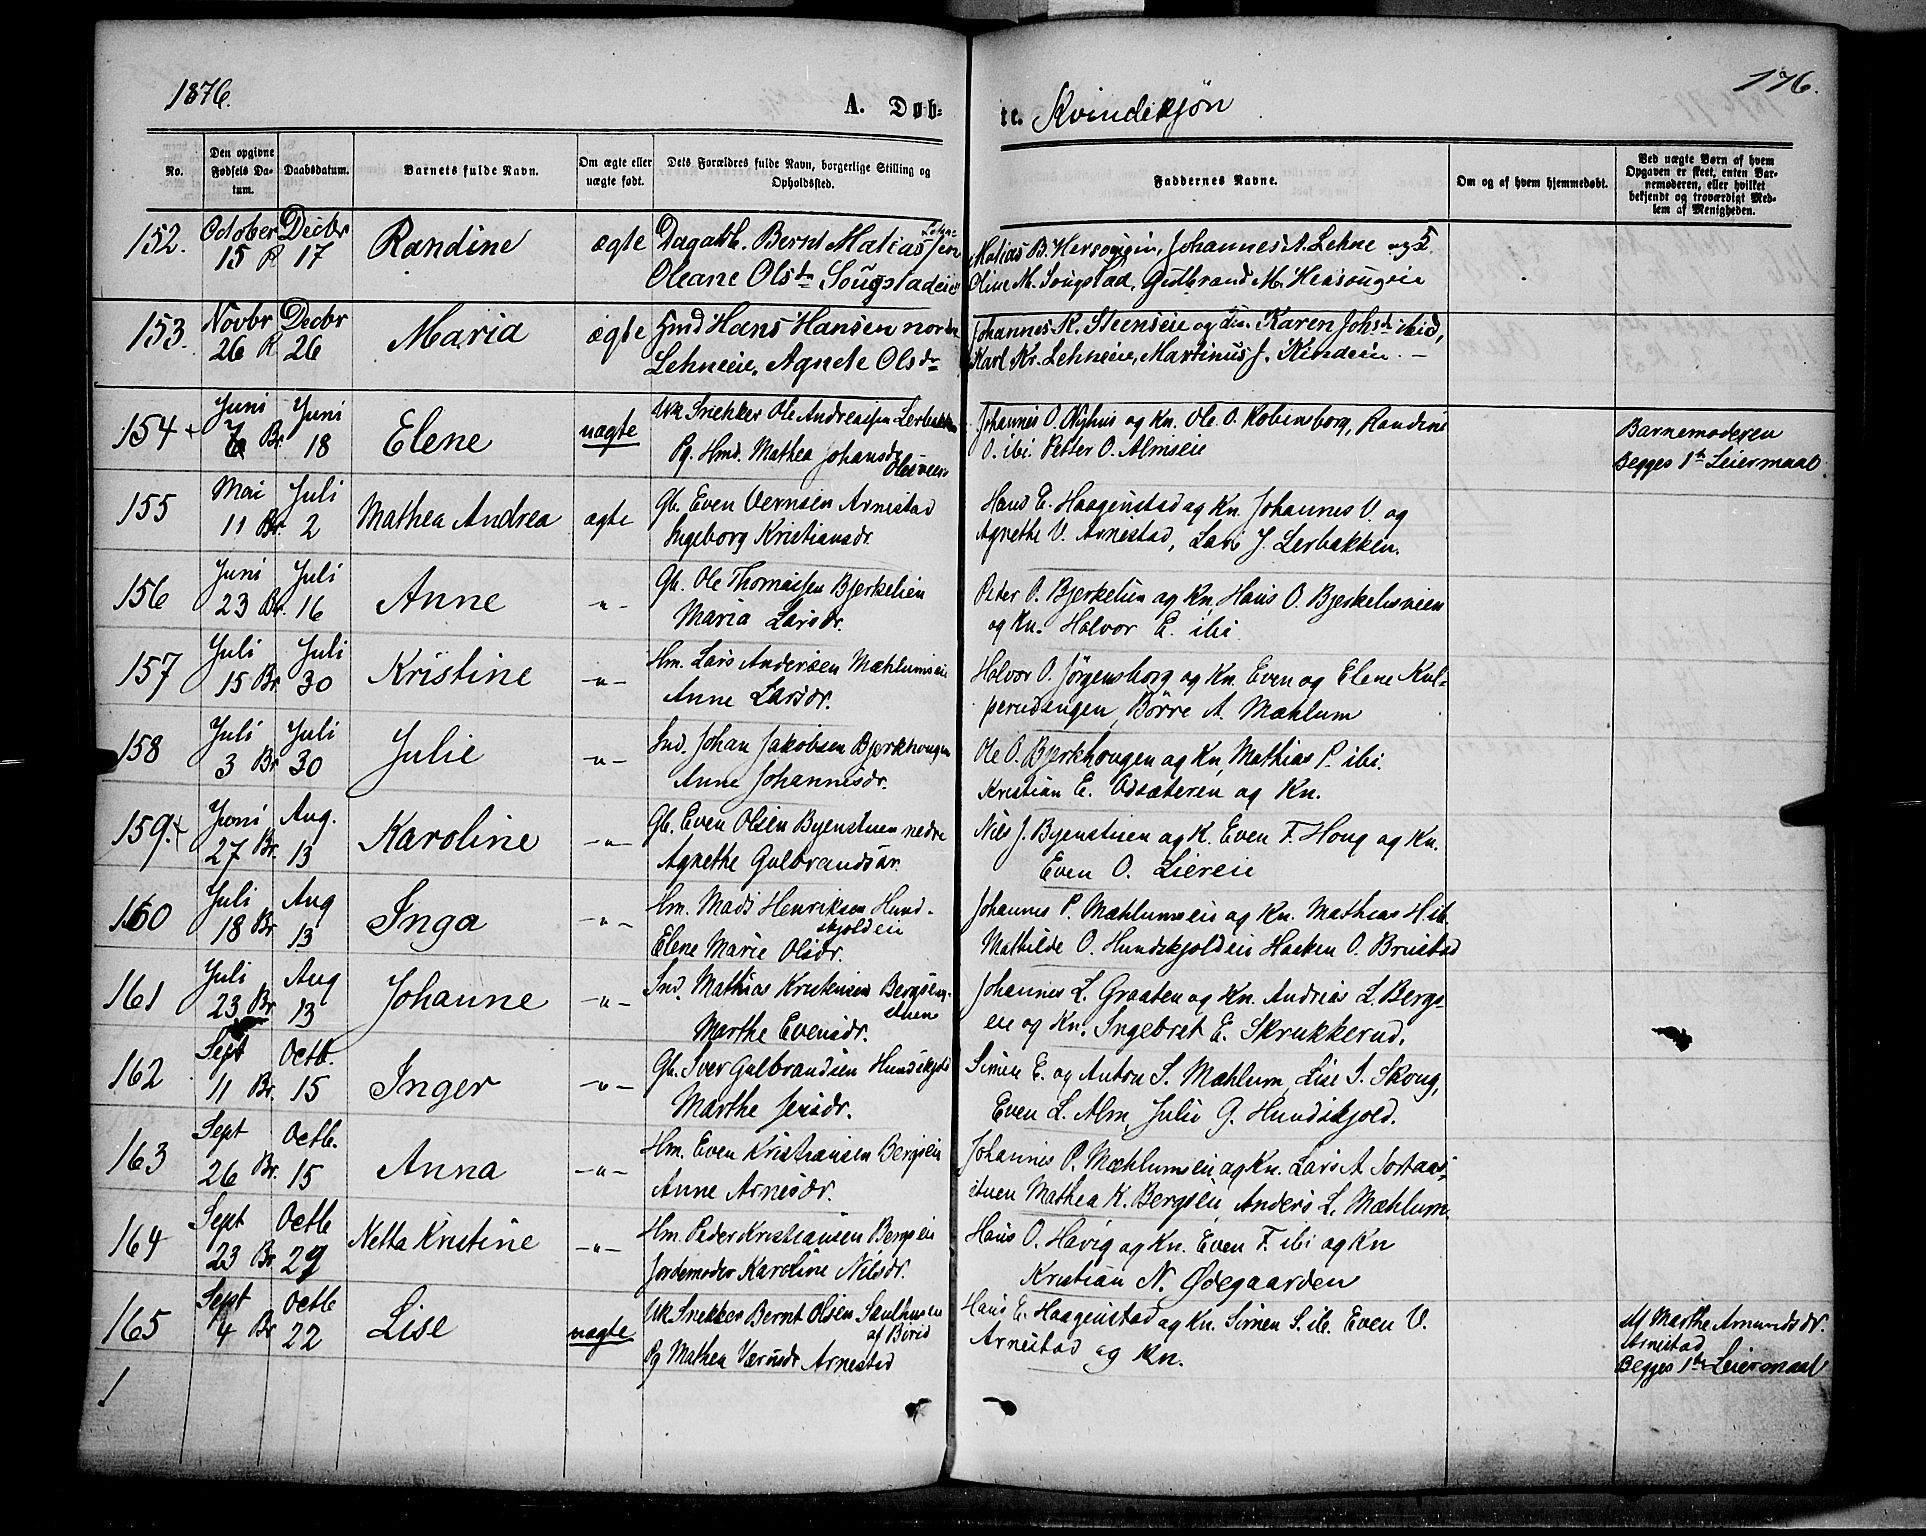 1876.
A. Døb-
te. Kvindekjøn
176.
No.
Den opgivne Fødsels Da-tum.
Daabsdatum.
Barnets fulde Navn.
Om ægte eller uægte født.
Dets Forældres fulde Navn, borgerlige Stilling og Opholdssted.
Faddernes Navne.
Om og af hvem hjemmedøbt.
Ved uægte Børn af hvem Opgaven er skeet, enten Bar-nemoderen, eller hvilket bekjendt og troværdigt Med-lem af Menigheden.
152. October 15 R Decbr 17 Randine ægte Dagarb. Bernt Matiassen Lehne- Matias B. Hersougein, Johannes A. Lehne og
Oleane Olsdr Sougstadeie Oline M. Sougstad, Gulbrand M. Hersougein
153. Novbr 26 R Decbr 26 Maria ægte Hmd Hans Hansen nordre Johannes K. Steenseie og Karen Johsdr ibid,
Lehneeie, Agnete Olsdr Karl Kr. Lehneeie, Martinus J. Kindein. –
154 + Juni 6 Br. Juni 18 Elene uægte Uk Snekker Ole Andreassen Lerbakken Johannes O. Nyhus og Kn. Ole O. Kobensborg, Randine Barnemoderen
Pg. Hmd. Mathea Johansdr O. ibi. Petter O. Almseie Begges 1ste Leiermaal
155 Mai 11 Br. Juli 2 Mathea Andrea ægte Gb. Even Vernsen Arnestad Hans E. Haagenstad og Kn. Johannes V. og
Ingeborg Kristiansdr. Agnethe V. Arnestad, Lars J. Lerbakken.
156 Juni 23 Br. Juli 16 Anne -"- Gb. Ole Thomassen Bjerkelien Peter O. Bjerkelien og Kn, Hans O. Bjerkelisveien
Maria Larsdr. og Kn. Halvor E. ibi.
157 Juli 15 Br. Juli 30 Kristine -"- Hm. Lars Andersen Mæhlumseie Halvor O. Jørgensborg og Kn. Even og Elene Kul-
Anne Larsdr. perudengen, Børre A. Mæhlum
158 Juli 3 Br. Juli 30 Julie -"- Ind. Johan Jakobsen Bjerkhougen Ole O. Bjerkhougen og Kn, Mathias P. ibi.
Anne Johannesdr. Kristian E. Odsæteren og Kn.
159.+ Juni 27 Br. Aug. 13 Karoline -"- Gb. Even Olsen Byenstuen nedre Nils J. Byenstuen og K. Even F. Houg og Kn.
Agnethe Gulbrandsdr. Even O. Liereie
160 Juli 18 Br. Aug 13 Inga -"- Hm. Mads Henriksen Hund- Johannes P. Mæhlumseie og Kn. Mathias H ib.
skjoldeie
Elene Marie Olsdr. Mathilde O. Hundskjoldeie Haaken O. Brustad
161 Juli 23 Br Aug 13 Johanne -"- Ind. Mathias Kristensen Bergseng- Johannes L. Graaten og Kn. Andreas L. Bergs-
stuen
Marthe Evensdr. eie og Kn. Ingebret E. Skrukkerud.
162 Sept 11 Br. Octb. 15 Inger -"- Gb. Iver Gulbrandsen Hundskjold Simen E. og Anton S. Mæhlum, Lise I. Skoug,
Marthe Jensdr. Even L. Alm, Julie G. Hundskjold.
163 Sept 26 Br. Octb. 15 Anna -"- Hm. Even Kristiansen Bergseie Johannes P. Mæhlumseie og Kn. Lars A.
Anne Arnesdr. stuen Mathea K. Bergseie, Anders L. Mæhlum.
164 Sept 23 Br. Octb 29 Netta Kristine -"- Hm. Peder Kristiansen Bergseie Hans O. Havig og Kn. Even F. ibi og Kn
Jordemoder Karoline Nilsdr. Kristian N. Ødegaarden
165 Sept 4 Br. Octb 22 Lise uægte Uk Snekker Bernt Olsen Saulhusen Hans E. Haagenstad og Kn. Simen S. ib. Even V. Af Marthe Amundsdr.
af Birid Arnestad
Pg Mathea Værnsdr Arnestad Arnestad og Kn. Begges 1ste Leiermaal
1